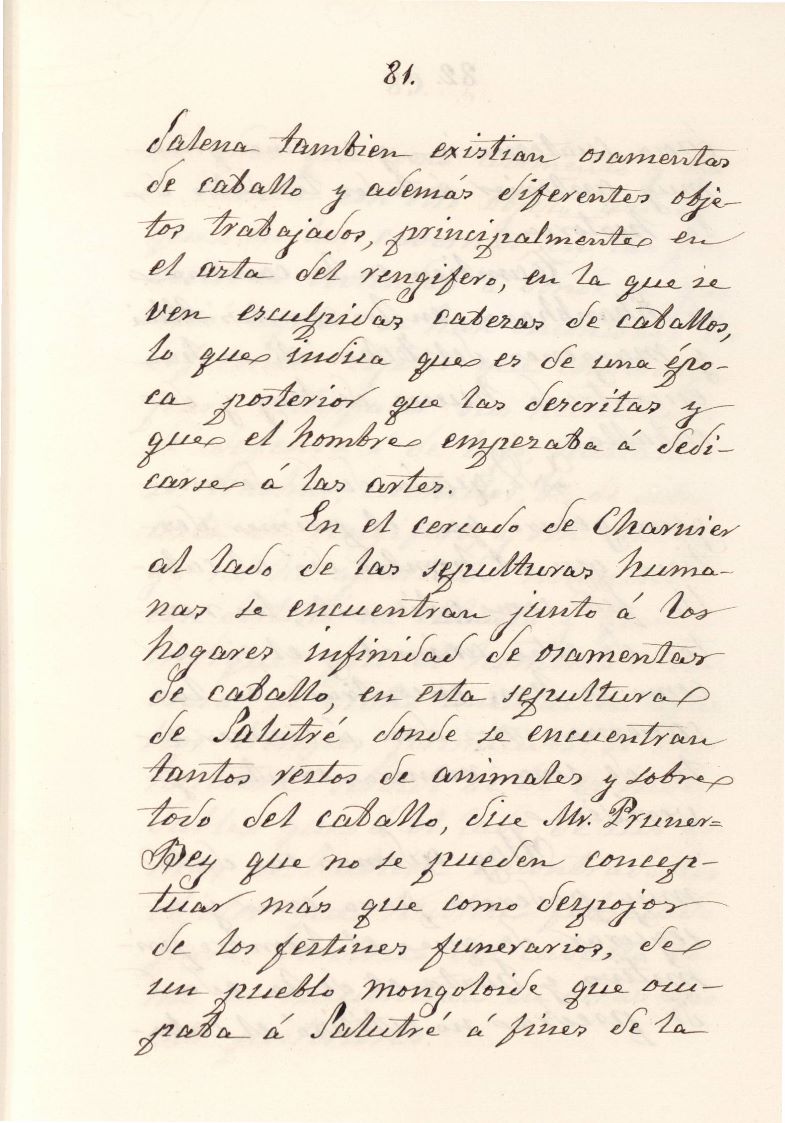 81.
Salena tambien existian osamentas
de caballo y además diferentes obje-
tos trabajados, principalmente en
el asta del rengifero, en la que se
ven esculpidas cabezas de caballos,
lo que indica que es de una épo-
ca posterior que las descritas y
que el hombre empezaba á dedi-
carse á las artes.
En el cercado de Charnier
al lado de las sepulturas huma-
nas se encuentran junto á los
hogares infinidad de osamentas
de caballo, en esta sepultura
de Salutré donde se encuentran
tantos restos de animales y sobre
todo del caballo, dice Mr. Pruner=
Bey que no se pueden concep-
tuar más que como despojos
de los festines funerarios, de
un pueblo mongoloide que ocu-
paba á Salutré á fines de la